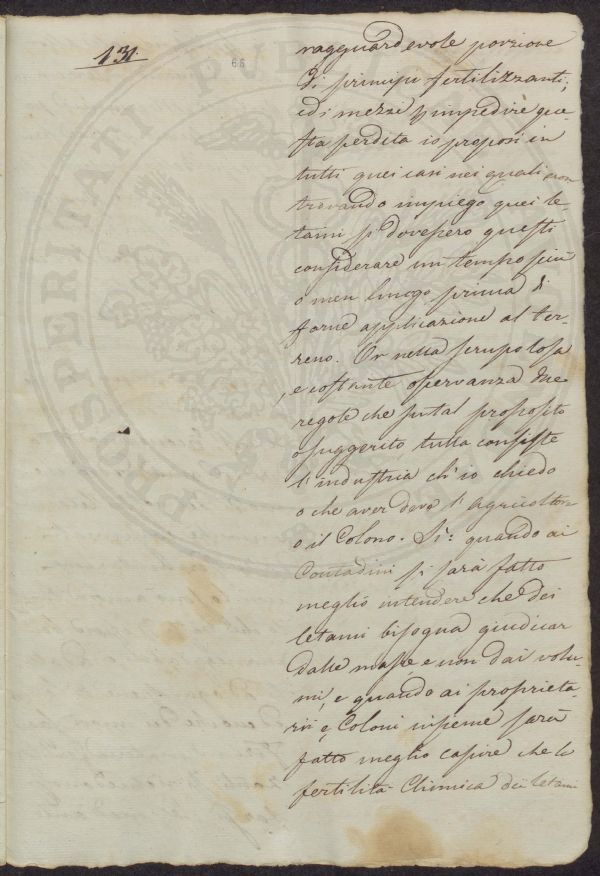 131.
66
ragguardevole porzione
di principi fertilizzanti;
ed i mezzi p impedire que-
sta perdita io proposi in
tutti quei casi nei quali non
trovando impiego quei le-
tami si dovessero questi
considerare un tempo più
o men lungo prima di
farne applicazione al ter-
reno. Or nella scrupolosa
e costante osservanza
regole che sul tal proposito
ò suggerito tutta consiste
l'industria ch'io chiedo
o che aver deve l'agricoltore
o il Colono. Sì: quando ai
Contadini si sarà fatto
meglio intendere che dei
letami bisogna giudicar
dalle masse e non dai volu-
mi, e quando ai proprieta-
rii e Coloni insieme sarà
fatto meglio capire che la
fertilità Chimica dei letami
PROSPERITATI PUBL